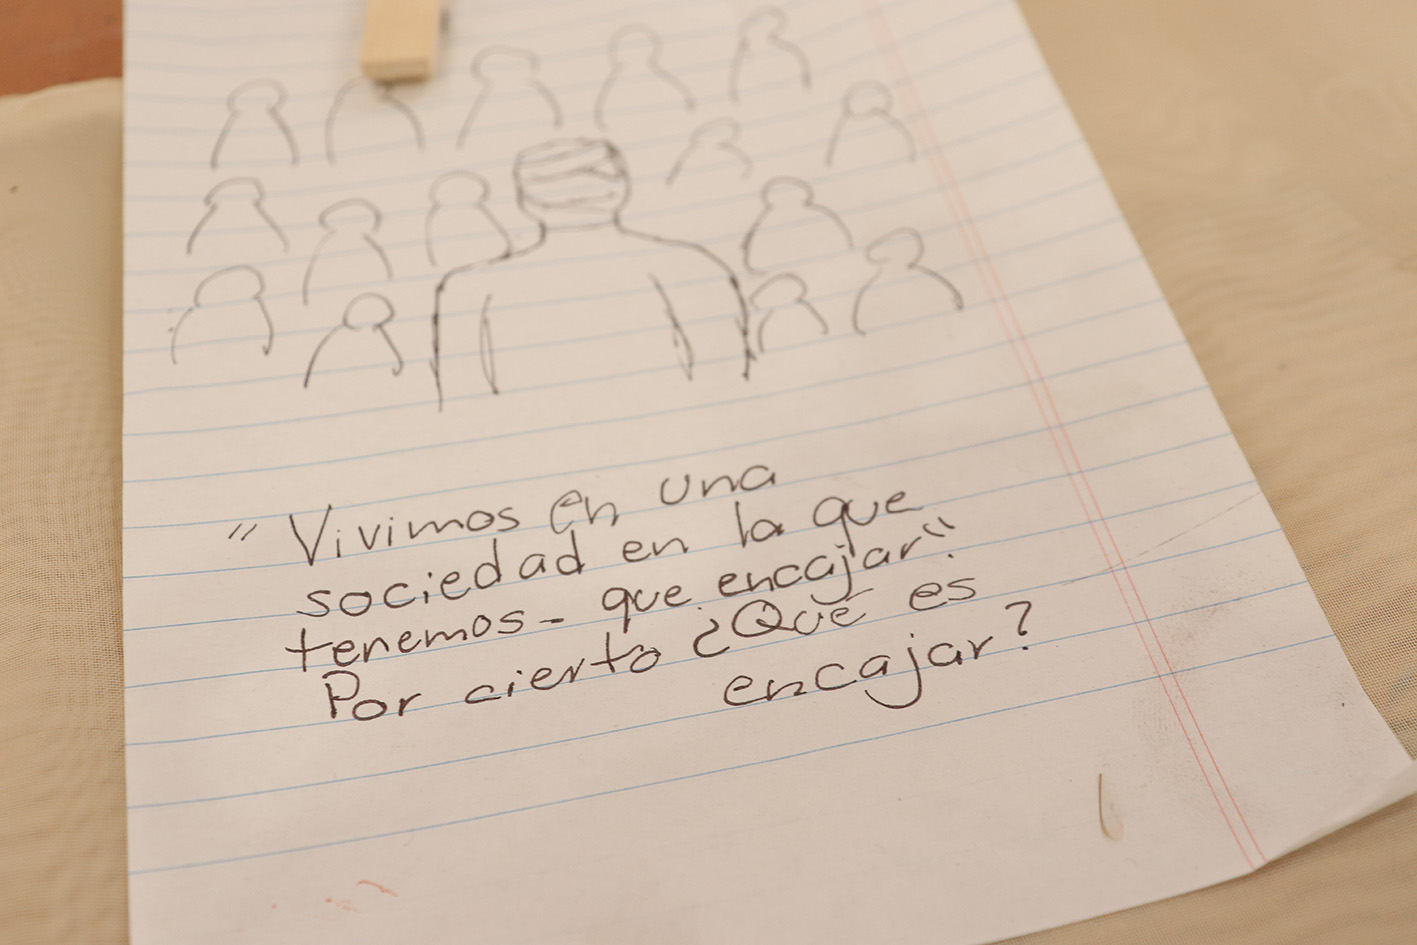 " Vivimos en una
sociedad en la que
tenemos - que encajar".
Por cierto ¿Qué es
encajar?